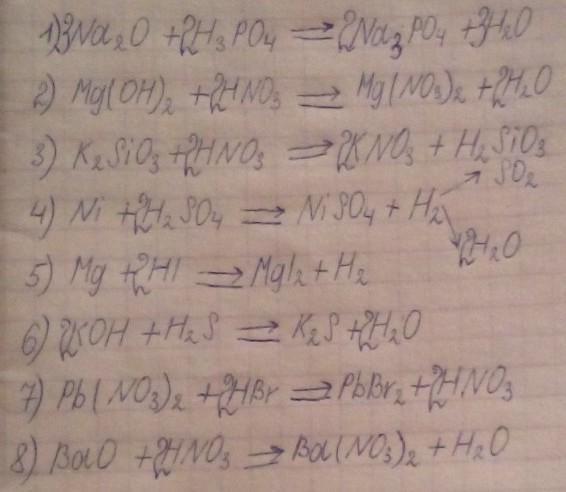 1) 3Na₂O + 2H₃PO₄ ⇌ 2Na₃PO₄ + 3H₂O
2) Mg(OH)₂ + 2HNO₃ ⇌ Mg(NO₃)₂ + 2H₂O
3) K₂SiO₃ + 2HNO₃ ⇌ 2KNO₃ + H₂SiO₃
4) Ni + 2H₂SO₄ ⇌ NiSO₄ + H₂ ↗ SO₂ ↘ 2H₂O
5) Mg + 2HI ⇌ MgI₂ + H₂
6) 2KOH + H₂S ⇌ K₂S + 2H₂O
7) Pb(NO₃)₂ + 2HBr ⇌ PbBr₂ + 2HNO₃
8) BaO + 2HNO₃ ⇌ Ba(NO₃)₂ + H₂O